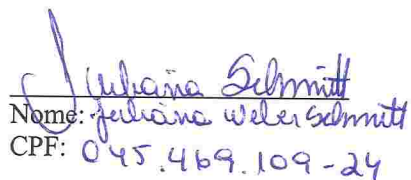 Juliana Schmitt
Nome: Juliana Weber Schmitt
CPF: 045.469.109-24